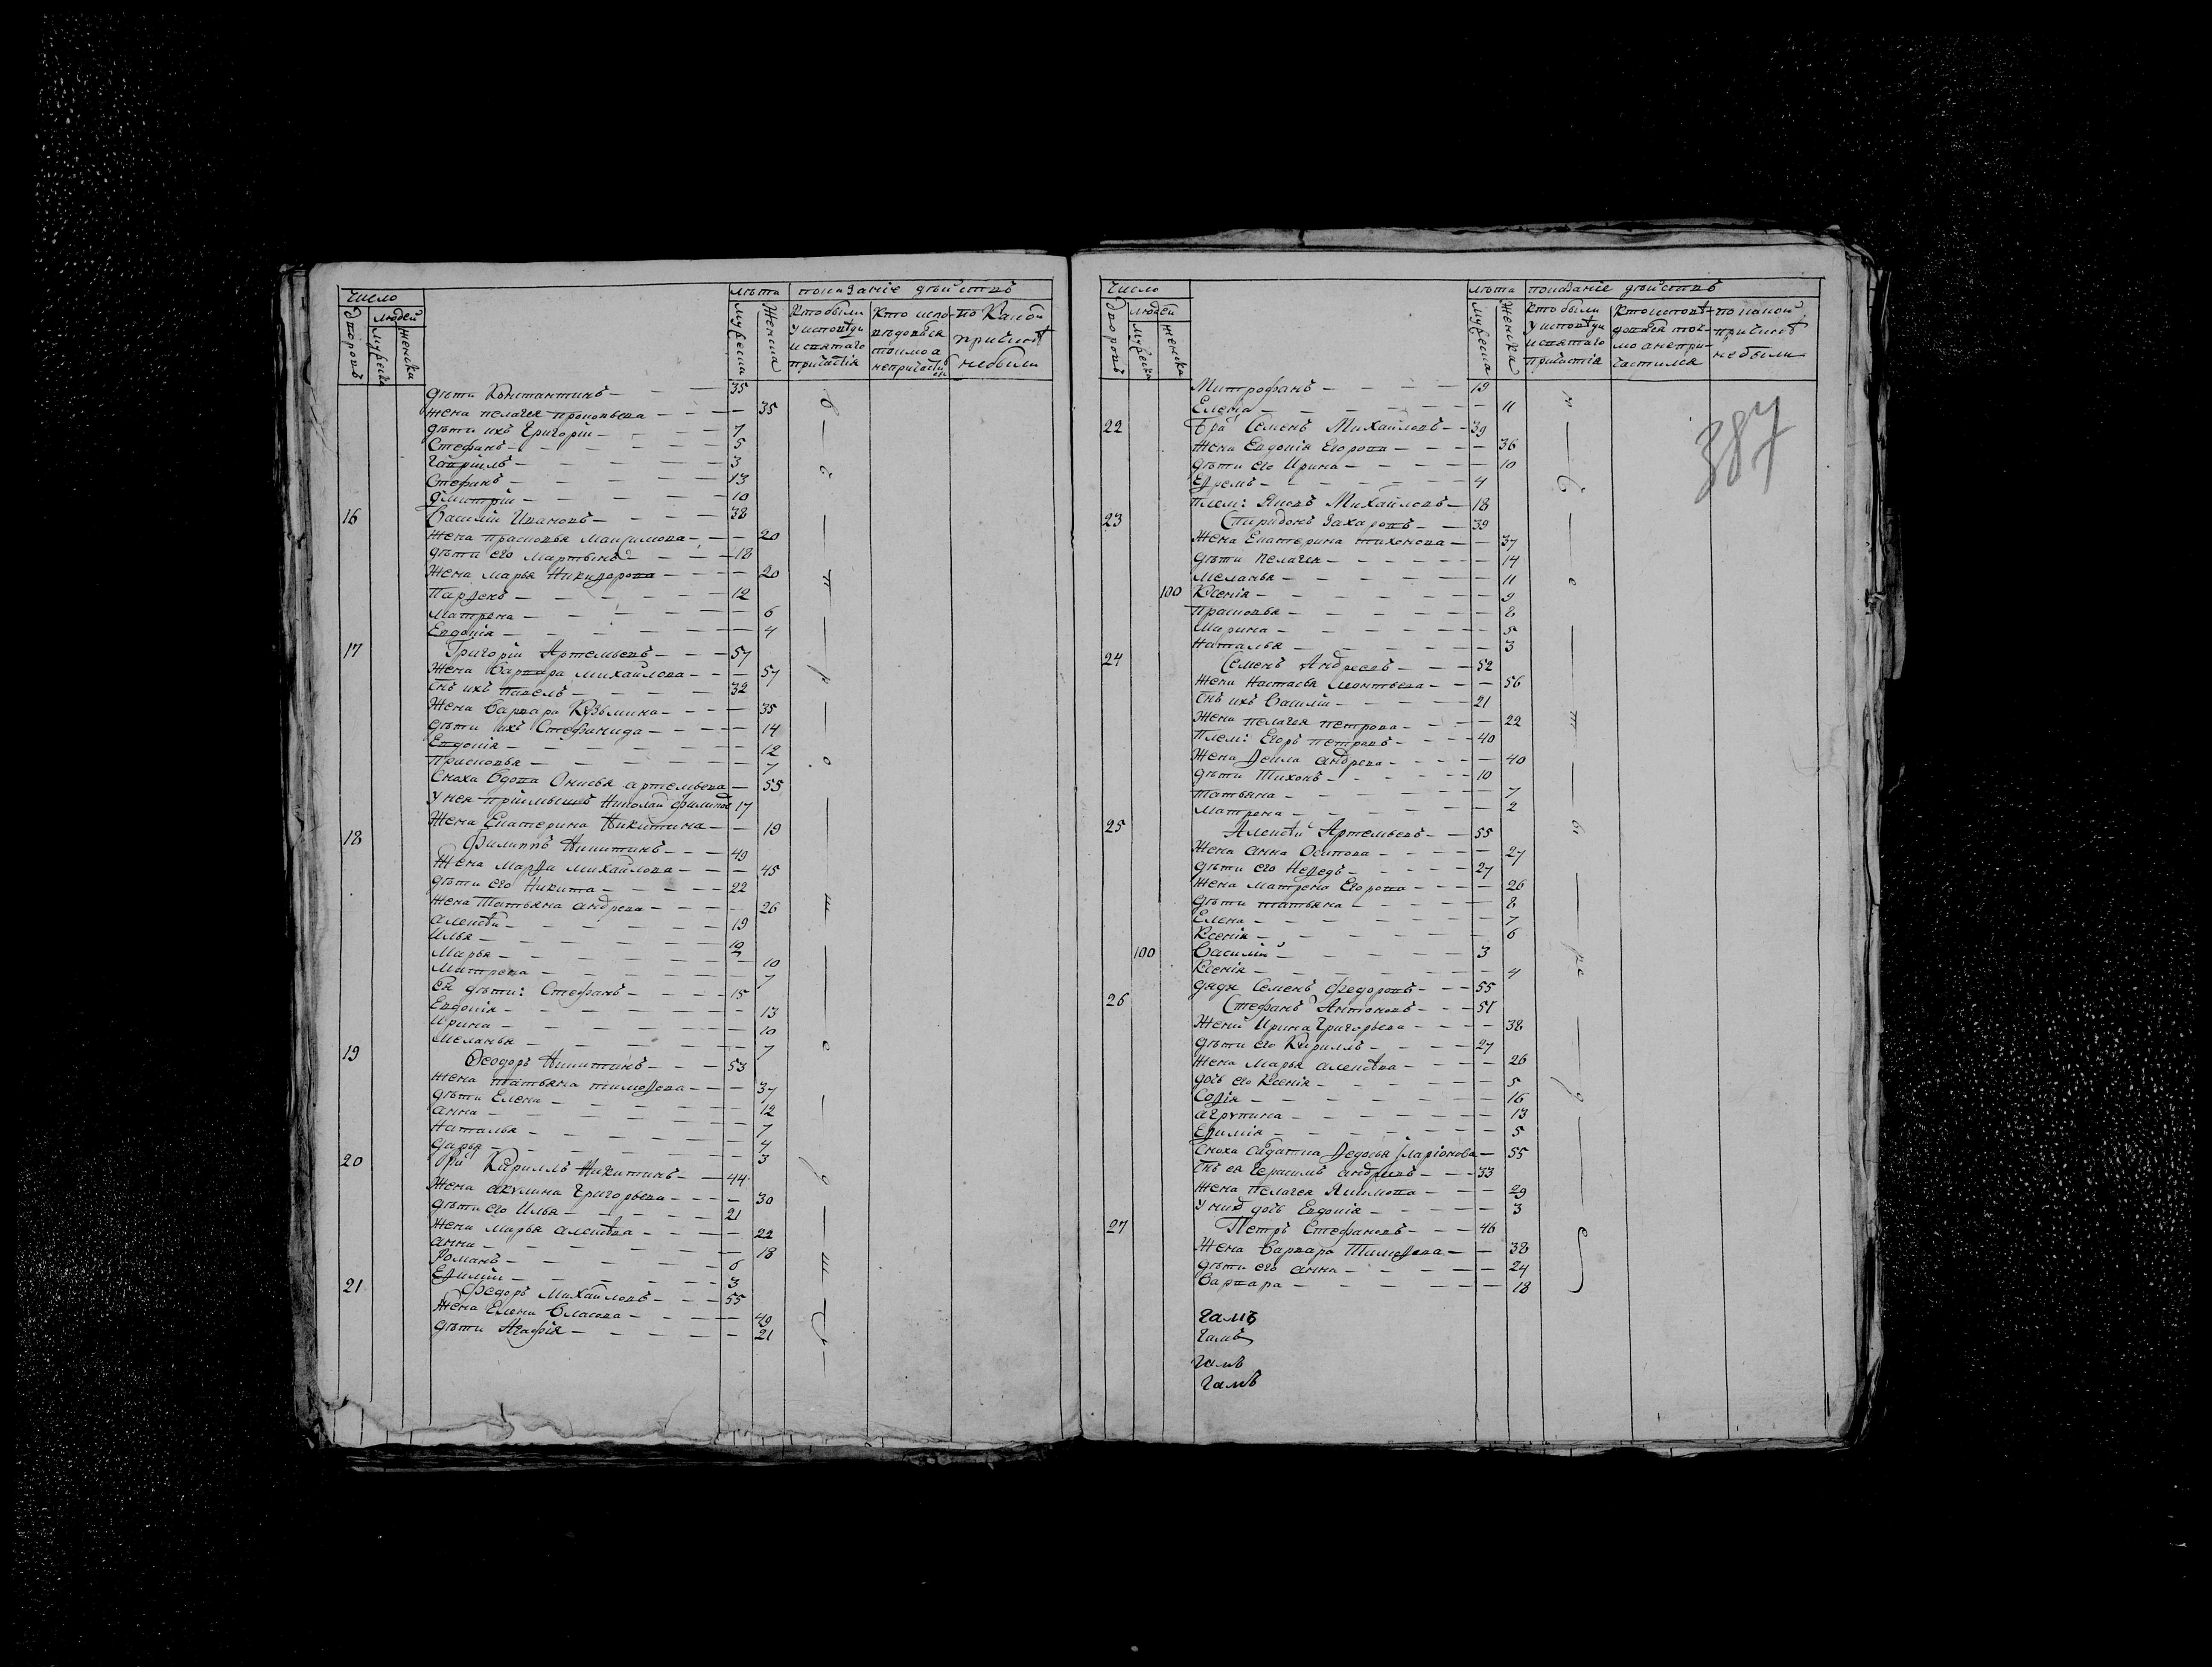 Число
людей
дворовъ
мужеска
женска
лѣта
мужеска
женска
показаніе дѣйствъ
Кто были у исповѣди и святаго причастія
Кто исповѣдовался токмо а непричастился
по какой причинѣ небыли
дѣти Константинъ 35
жена пелагея прокопьева 35
дѣти ихъ Григорій 7
Стефанъ 5
Гавріилъ 3
Стефанъ 13
димитрій 10
16 Василій Ивановъ 38
жена прасковья максимова 20
дѣти его мартынъ 18
жена марья Никифорова 20
Парфенъ 12
матрена 6
Евдокія 4
17 Григорій Артемьевъ 57
жена варвара михайлова 57
снъ ихъ павелъ 32
жена варвара Кузьмина 35
дѣти ихъ Стефанида 14
Евдокія 12
Прасковья 7
Сноха вдова Онисья артемьева 55
у нея пріимышъ Николай филиповъ 17
жена Екатерина Никитина 19
18 Филиппъ Никитинъ 49
жена марфа михайлова 45
дѣти его Никита 22
жена Татьяна андреева 26
алексѣй 19
Илья
Марья 10
Матрена 7
Ея дѣти: Стефанъ 15
Евдокія 13
Ирина 10
Меланья 7
19 Ѳеодоръ Никитинъ 53
жена татьяна тимофева 37
дѣти Елена 12
анна 7
Наталья 4
дарья 3
20 Бра Кириллъ Никитинъ 44
жена акулина Григорьева 30
дѣти его Илья 21
жена марья алексѣва 22
анна 18
Романъ 6
Ефимій 3
21 Федоръ Михайловъ 55
жена Елена Власова 49
дѣти Агафія 21
Число
людей
дворовъ
мужеска
женска
лѣта
мужеска
женска
показаніе дѣйствъ
Кто были у исповѣди и святаго причастія
Кто исповѣдовался токмо а непричастился
по какой причинѣ небыли
387
Митрофанъ 19
Елена 11
22 Бра Семенъ Михайловъ 39
жена Евдокія Егорова 36
дѣти его Ирина 10
Ефремъ 4
плем: Яковъ Михайловъ 18
23 Спиридонъ Захаровъ 39
жена Екатерина тихонова 37
дѣти пелагея 14
меланья 11
100 Ксенія 9
прасковья 8
Марина 5
Наталья 3
24 Семенъ Андреевъ 52
жена Настасья леонтьева 56
снъ ихъ Василій 21
жена пелагея петрова 22
плем: Егоръ петровъ 40
жена Фекла андреева 40
дѣти Тихонъ 10
татьяна 7
матрена 2
25 Алексѣй Артемьевъ 55
жена анна Осипова 27
дѣти его Нефедъ 27
жена матрена Егорова 26
дѣти татьяна 8
Елена 7
Ксенія 6
100 Василій 3
Ксенія 4
дядя Семенъ федоровъ 55
26 Стефанъ Антоновъ 51
жена Ирина Григорьева 38
дѣти его Кириллъ 27
жена марья алексѣва 26
дочь его Ксенія 5
Софія 16
агрупина 13
Ефимія 5
Сноха Солдатка Федосья Иларіонова 55
снъ ея Герасимъ андреевъ 33
жена пелагея Якимова 29
у нихъ дочь Евдокія 3
27 Петръ Стефановъ 46
жена варвара Тимофева 38
дѣти его анна 24
варвара 18